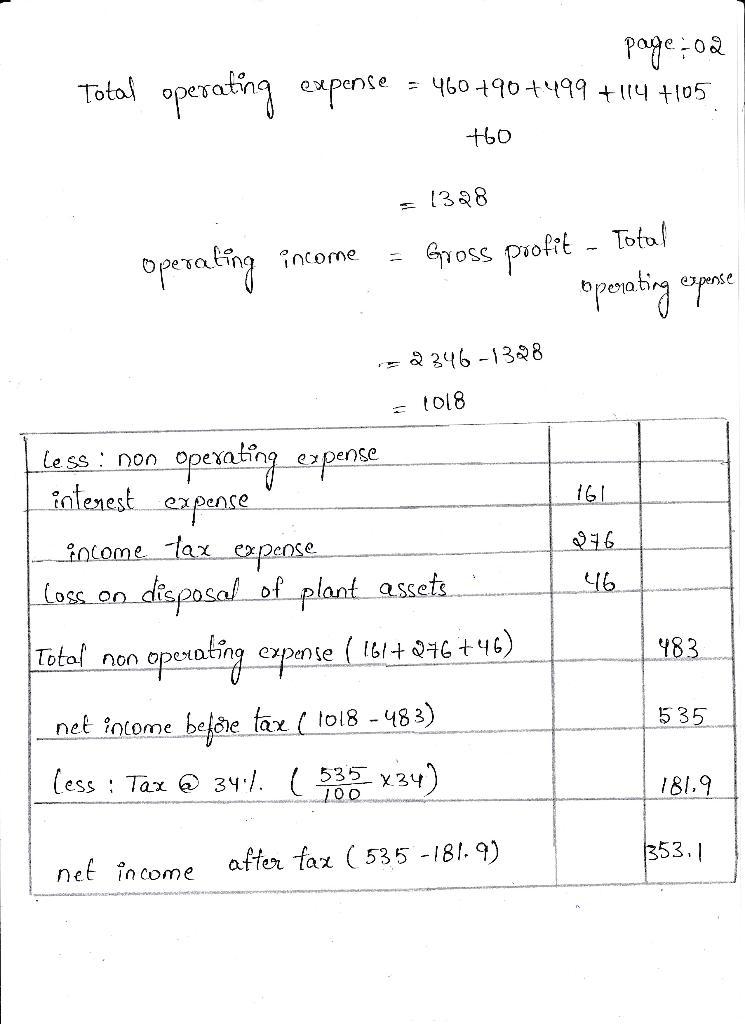 page:-02
Total operating expense = 460+90+499+114+105
+60
= 1328
operating income = Gross profit - Total
operating expense
= 2346-1328
= 1018
Less : non operating expense
interest expense 161
income tax expense 276
Loss on disposal of plant assets 46
Total non operating expense (161+276+46) 483
net income before tax (1018-483) 535
Less : Tax @ 34%. (535/100 x34) 181.9
net income after tax (535-181.9) 353.1